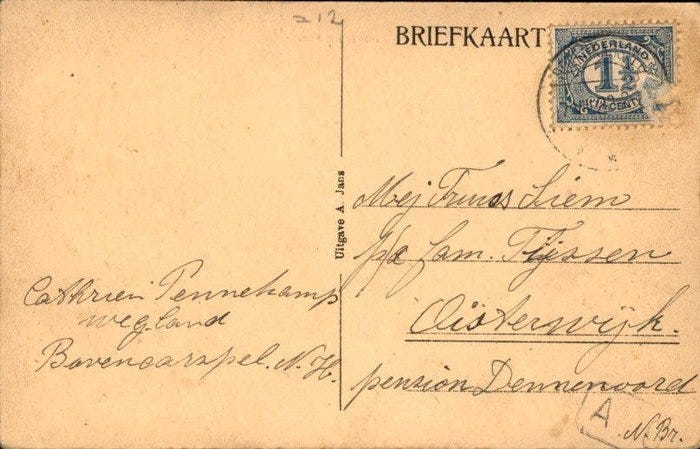 212
BRIEFKAART
NEDERLAND
1½
CENT
Uitgave A. Jans
Mej Truus Siem
p/a fam. Tijssen
Oisterwijk.
pension Dennenoord
N. Br.
A
Cathrien Pennekamp
wegland
Bovencarspel. N. H.